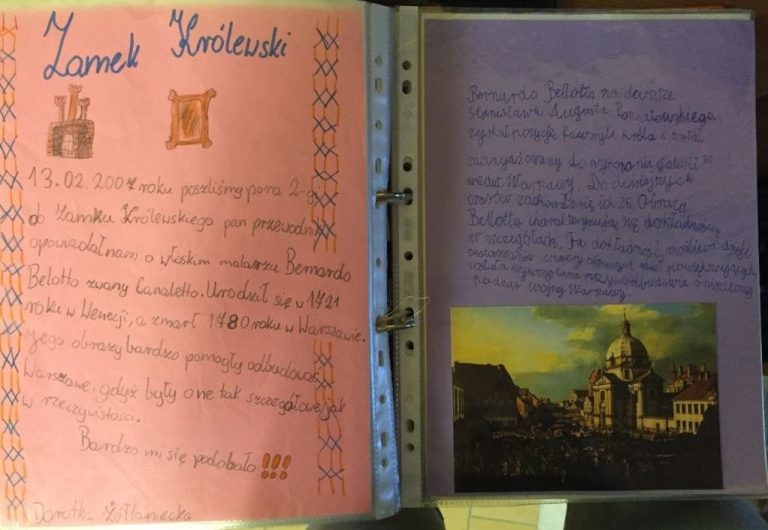 Zamek Królewski
13.02.2007 roku poszliśmy poraz 2-gi
do Zamku Królewskiego pan przewodnik
opowiadał nam o włoskim malarzu Bernardo
Belotto zwany Canaletto. Urodził się w 1721
roku w Wenecji, a zmarł 1780 roku w Warszawie.
Jego obrazy bardzo pomogły odbudować
Warszawe, gdyż były one tak szczegółowe jak
w rzeczywistości.
Bardzo mi się podobało!!!
Dorotka Żółtaniecka
Bernardo Bellotto na dworze
Stanisława Augusta Poniatowskiego
zyskał pozycję faworyta króla i został
zaangażowany do wykonania galerii 
wedut Warszawy. Do dzisiejszych
czasów zachowało się ich 26. Obrazy
Bellotta charakteryzują się dokładnością
w szczegółach. Ta dokładność możliwa dzięki
zastosowaniu camery obscury
została wykorzystana przy odbudowie zniszczonej
podczas wojny Warszawy.